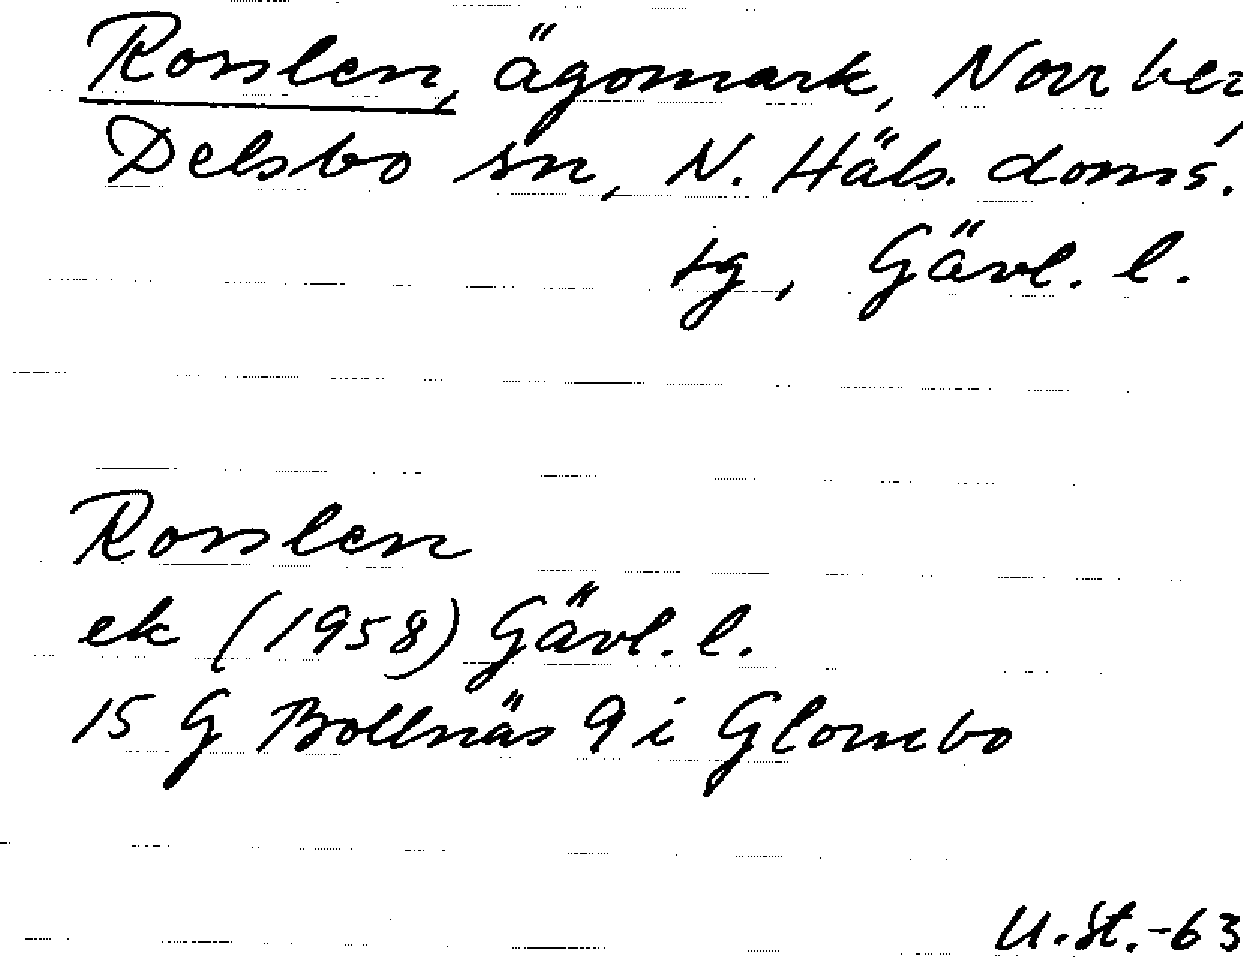 Rosslen, ägomark, Norrber,
Delsbo sn, N. Häls. doms.
tg, Gävl. l.
Rosslen
ek (1958) Gävl. l.
15 G Bollnäs 9 i Glombo
U.St.-63